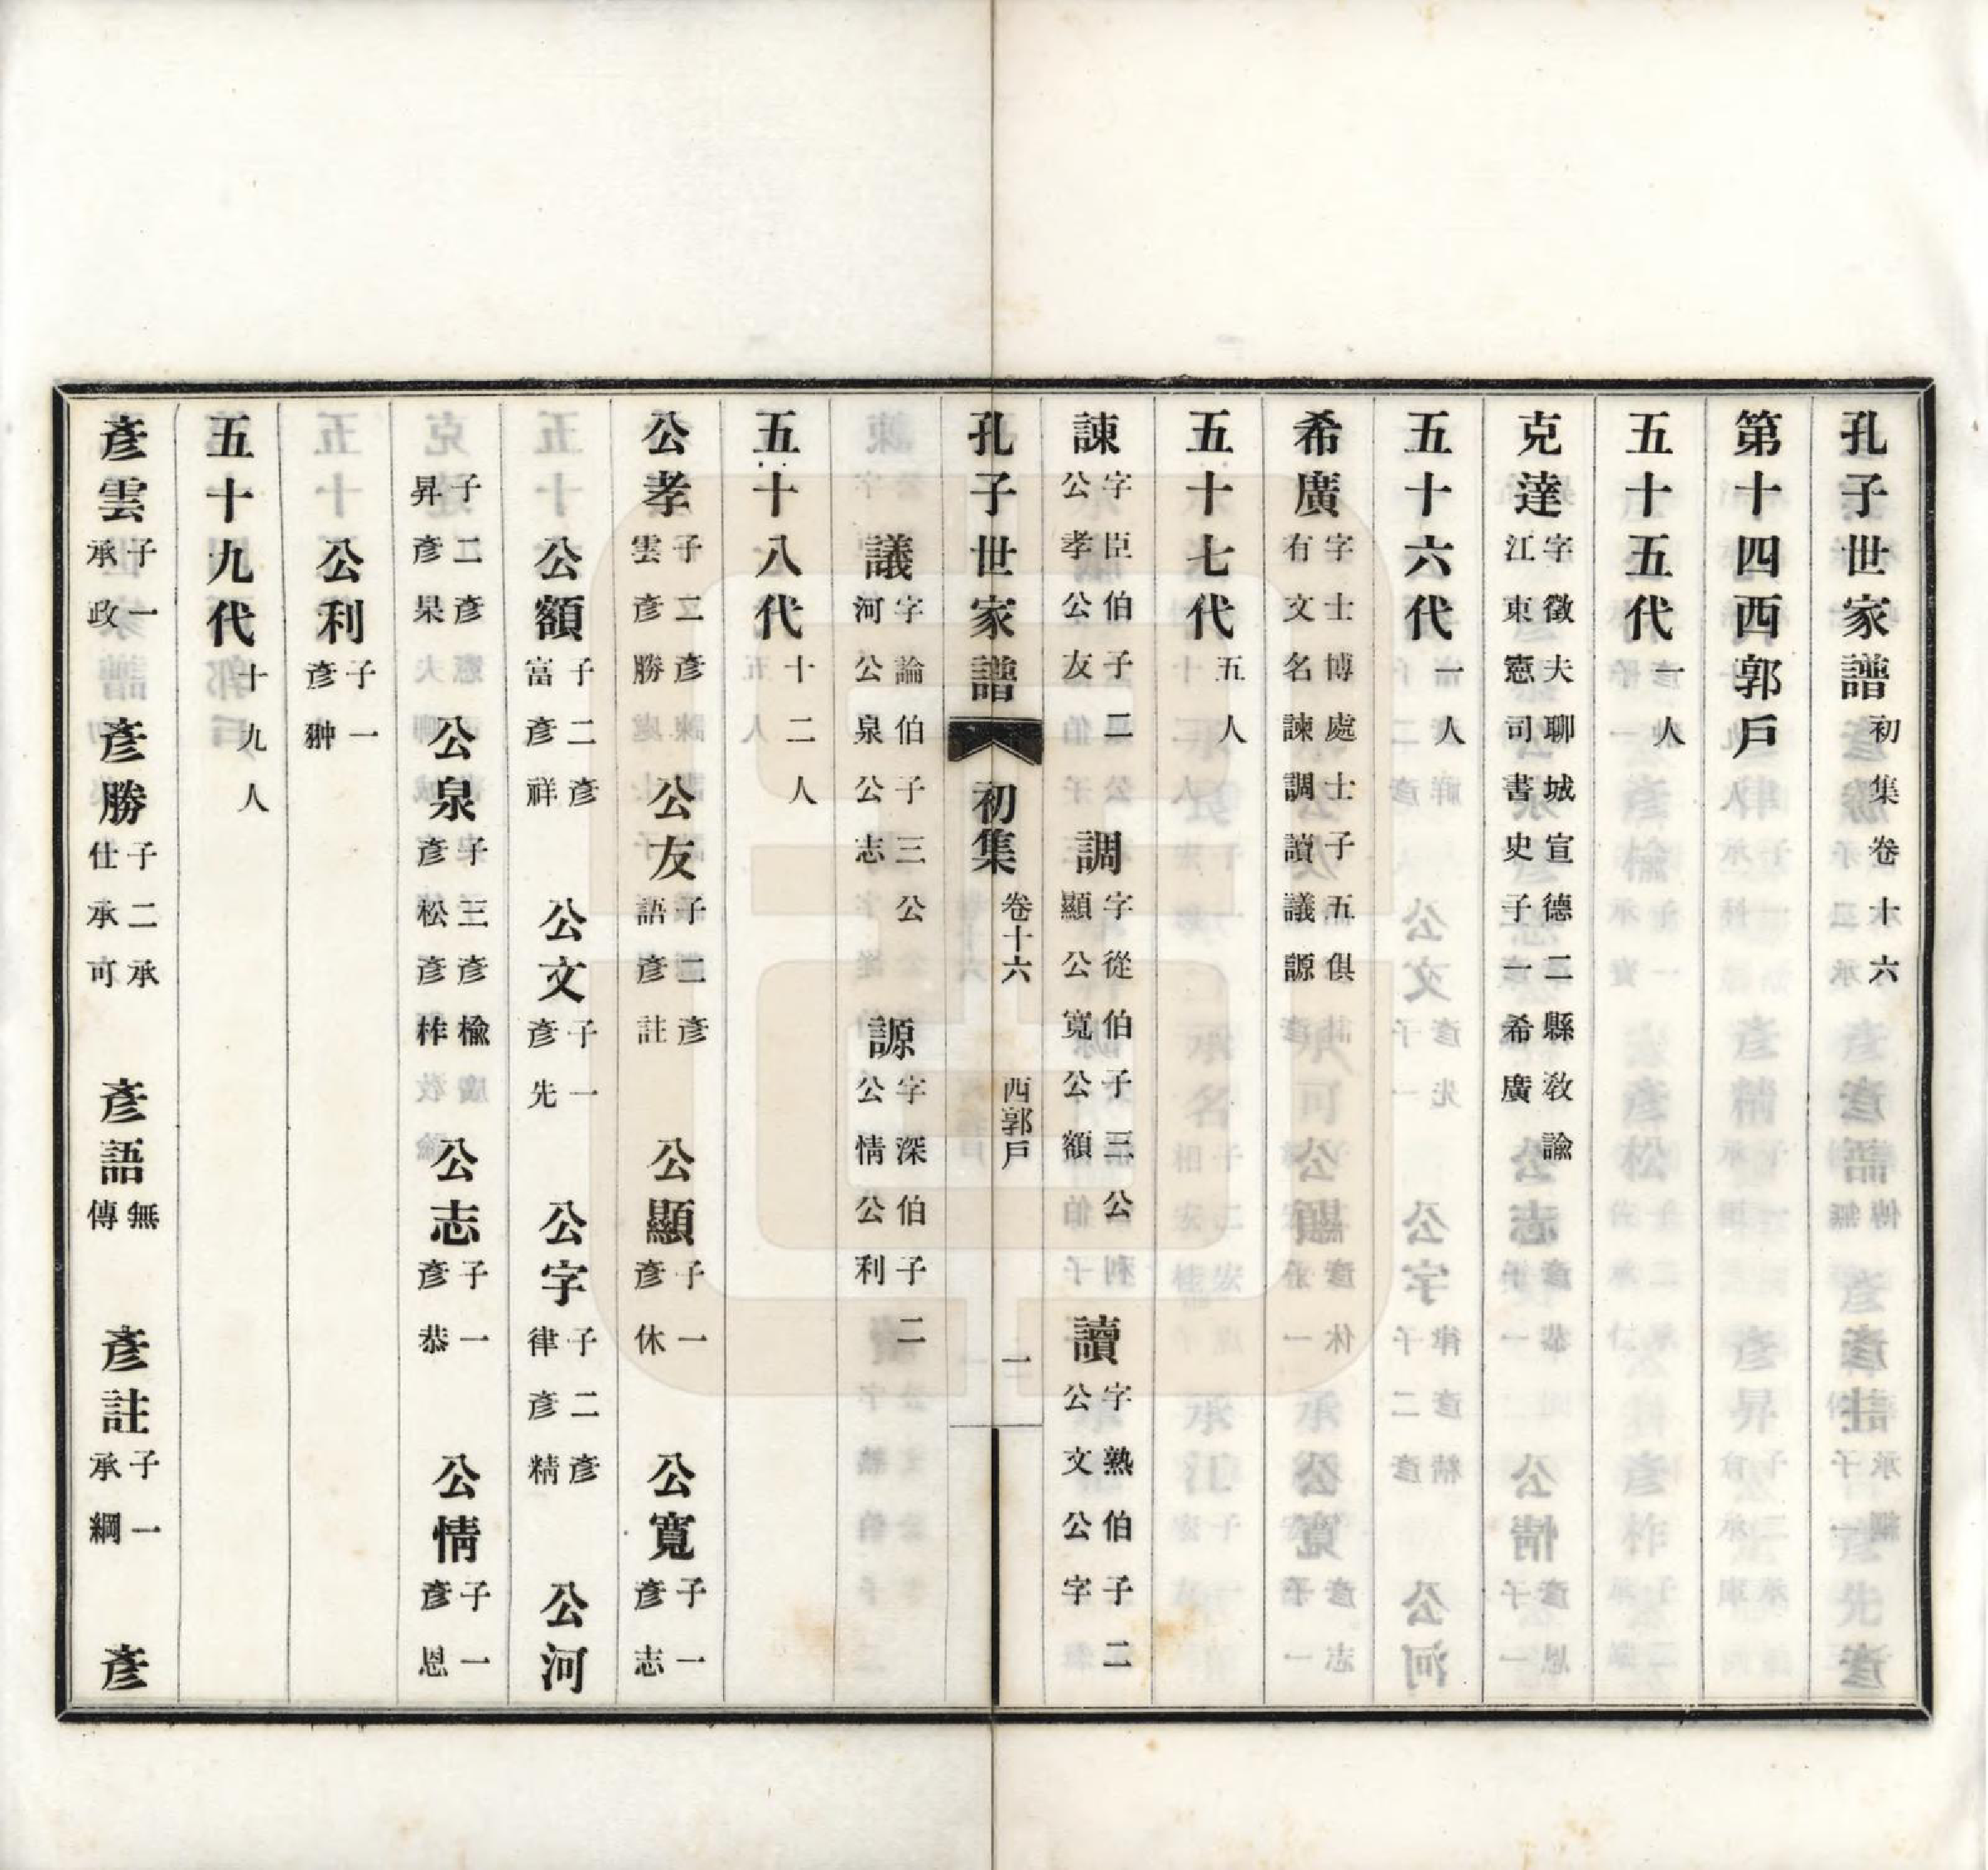 孔子世家譜初集卷十六
第十四西郭戶
五十五代一人
克達字徵夫聊城宣德二縣教諭江東憲司書史子一希廣
五十六代一人
希廣字士博處士子五俱有文名諫調讀議謜
五十七代五人
諫字臣伯子二公孝公友　調字從伯子三公顯公寬公額　讀字熟伯子二公文公字
孔子世家譜　初集　卷十六　西郭戶　一
議字論伯子三公河公泉公志　謜字深伯子二公情公利
五十八代十二人
公孝子二彥雲彥勝　公友子二彥語彥註　公顯子一彥休　公寬子一彥志
公額子二彥富彥祥　公文子一彥先　公字子二彥律彥精　公河
子二彥昇彥杲　公泉子三彥楡彥松彥柞　公志子一彥恭　公情子一彥恩
公利子一彥翀
五十九代十九人
彥雲子一承政　彥勝子二承仕承可　彥語無傳　彥註子一承綱　彥